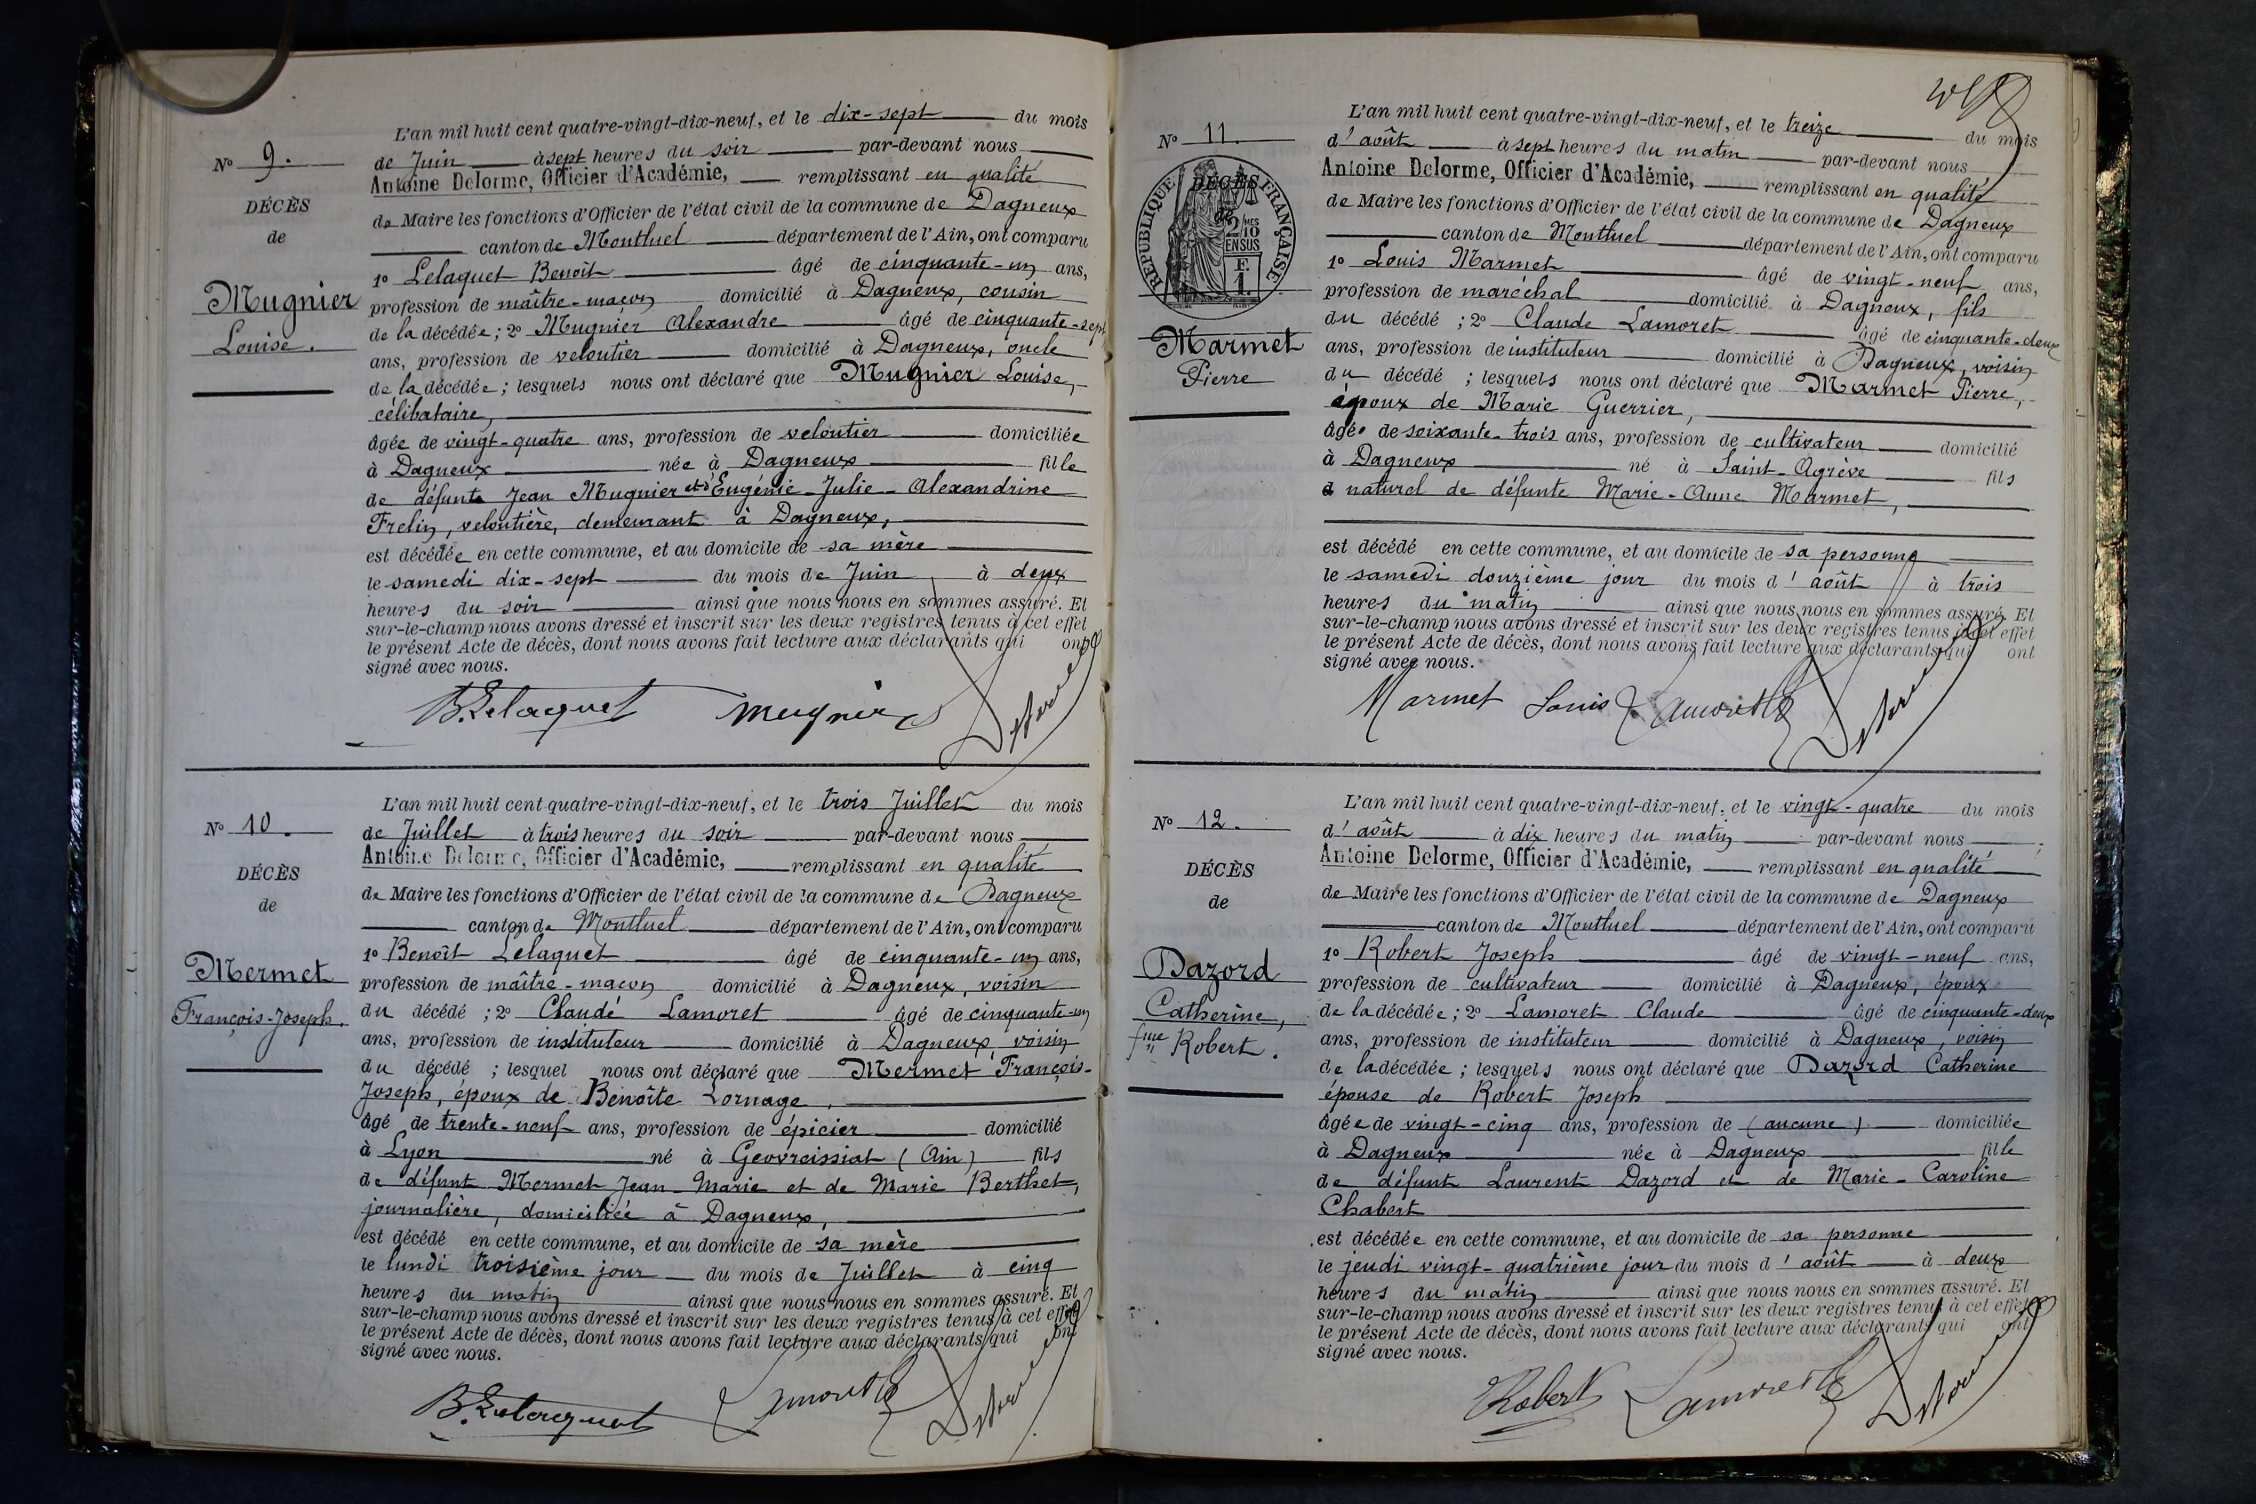 L'an mil huit cent quatre-vingt-dix-neuf, et le dix-sept du mois
No 9.
de Juin à sept heures du soir par-devant nous
Antoine Delorme, Officier d'Académie, remplissant en qualité
DÉCÈS
de Maire les fonctions d'Officier de l'état civil de la commune de Dagneux
de
canton de Montluel département de l'Ain, ont comparu
1o Lelaquet Benoît âgé de cinquante-un ans,
Mugnier
profession de maître-maçon domicilié à Dagneux, cousin
Louise.
de la décédée; 2o Mugnier Alexandre âgé de cinquante-sept
ans, profession de veloutier domicilié à Dagneux, oncle
de la décédée; lesquels nous ont déclaré que Mugnier Louise,
célibataire,
âgée de vingt-quatre ans, profession de veloutier domiciliée
à Dagneux née à Dagneux fille
de défunt Jean Mugnier et d'Eugénie-Julie-Alexandrine
Frelin, veloutière, demeurant à Dagneux,
est décédée en cette commune, et au domicile de sa mère
le samedi dix-sept du mois de Juin à deux
heures du soir ainsi que nous nous en sommes assuré. Et
sur-le-champ nous avons dressé et inscrit sur les deux registres tenus à cet effet
le présent Acte de décès, dont nous avons fait lecture aux déclarants qui ont
signé avec nous.
B. Lelaquet Mugnier Delorme
L'an mil huit cent quatre-vingt-dix-neuf, et le trois Juillet du mois
No 10.
de Juillet à trois heures du soir par-devant nous
Antoine Delorme, Officier d'Académie, remplissant en qualité
DÉCÈS
de Maire les fonctions d'Officier de l'état civil de la commune de Dagneux
de
canton de Montluel département de l'Ain, ont comparu
1o Benoît Lelaquet âgé de cinquante-un ans,
Mermet
profession de maître-maçon domicilié à Dagneux, voisin
François-Joseph.
du décédé; 2o Claude Lamoret âgé de cinquante-un
ans, profession de instituteur domicilié à Dagneux, voisin
du décédé; lesquel nous ont déclaré que Mermet François-
Joseph, époux de Benoîte Lornage,
âgé de trente-neuf ans, profession de épicier domicilié
à Lyon né à Geovreissiat (Ain) fils
de défunt Mermet Jean-Marie et de Marie Berthet,
journalière, domiciliée à Dagneux,
est décédé en cette commune, et au domicile de sa mère
le lundi troisième jour du mois de Juillet à cinq
heures du matin ainsi que nous nous en sommes assuré. Et
sur-le-champ nous avons dressé et inscrit sur les deux registres tenus à cet effet
le présent Acte de décès, dont nous avons fait lecture aux déclarants qui ont
signé avec nous.
B. Lelaquet Lamoret Delorme
L'an mil huit cent quatre-vingt-dix-neuf, et le treize du mois
No 11.
d'août à sept heures du matin par-devant nous
Antoine Delorme, Officier d'Académie, remplissant en qualité
RÉPUBLIQUE FRANÇAISE
DÉCÈS
de
2/10 MES
EN SUS
F.
1.
de Maire les fonctions d'Officier de l'état civil de la commune de Dagneux
canton de Montluel département de l'Ain, ont comparu
1o Louis Marmet âgé de vingt-neuf ans,
profession de maréchal domicilié à Dagneux, fils
du décédé; 2o Claude Lamoret âgé de cinquante-deux
Marmet
ans, profession de instituteur domicilié à Dagneux, voisin
Pierre
du décédé; lesquels nous ont déclaré que Marmet Pierre,
époux de Marie Guerrier,
âgé de soixante-trois ans, profession de cultivateur domicilié
à Dagneux né à Saint-Agrève fils
naturel de défunte Marie-Anne Marmet,
est décédé en cette commune, et au domicile de sa personne
le samedi douzième jour du mois d'août à trois
heures du matin ainsi que nous nous en sommes assuré. Et
sur-le-champ nous avons dressé et inscrit sur les deux registres tenus à cet effet
le présent Acte de décès, dont nous avons fait lecture aux déclarants qui ont
signé avec nous.
Marmet Louis Lamoret Delorme
L'an mil huit cent quatre-vingt-dix-neuf, et le vingt-quatre du mois
No 12.
d'août à dix heures du matin par-devant nous
Antoine Delorme, Officier d'Académie, remplissant en qualité
DÉCÈS
de Maire les fonctions d'Officier de l'état civil de la commune de Dagneux
de
canton de Montluel département de l'Ain, ont comparu
1o Robert Joseph âgé de vingt-neuf ans,
Dazord
profession de cultivateur domicilié à Dagneux, époux
Catherine,
de la décédée; 2o Lamoret Claude âgé de cinquante-deux
fme Robert.
ans, profession de instituteur domicilié à Dagneux, voisin
de la décédée; lesquels nous ont déclaré que Dazord Catherine
épouse de Robert Joseph
âgée de vingt-cinq ans, profession de (aucune) domiciliée
à Dagneux née à Dagneux fille
de défunt Laurent Dazord et de Marie-Caroline
Chabert
est décédée en cette commune, et au domicile de sa personne
le jeudi vingt-quatrième jour du mois d'août à deux
heures du matin ainsi que nous nous en sommes assuré. Et
sur-le-champ nous avons dressé et inscrit sur les deux registres tenus à cet effet
le présent Acte de décès, dont nous avons fait lecture aux déclarants qui ont
signé avec nous.
Robert Lamoret Delorme